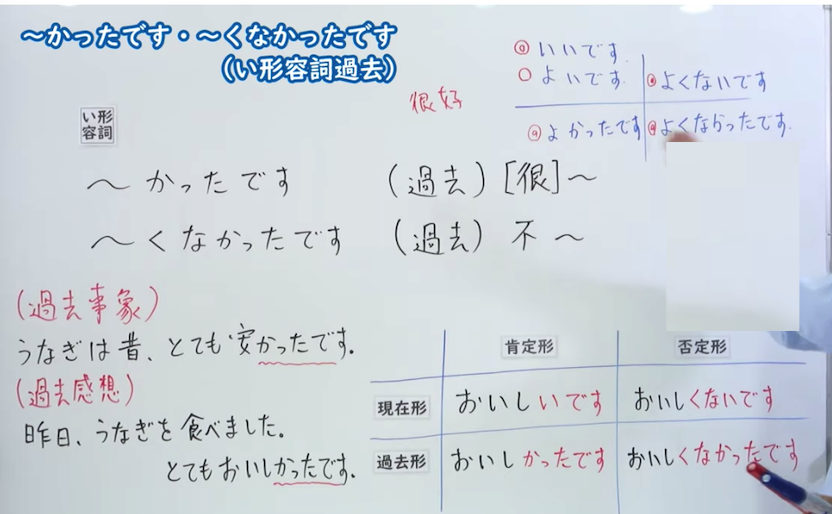 ～かったです・～くなかったです
（い形容詞過去）
很好
◎いいです
○よいです
◎よくないです
◎よかったです
◎よくなかったです.
い形
容詞
～かったです （過去）[很]～
～くなかったです （過去）不～
（過去事象）
うなぎは昔、とても安かったです.
（過去感想）
昨日、うなぎを食べました。
とてもおいしかったです.
肯定形 否定形
現在形 おいしいです おいしくないです
過去形 おいしかったです おいしくなかったです